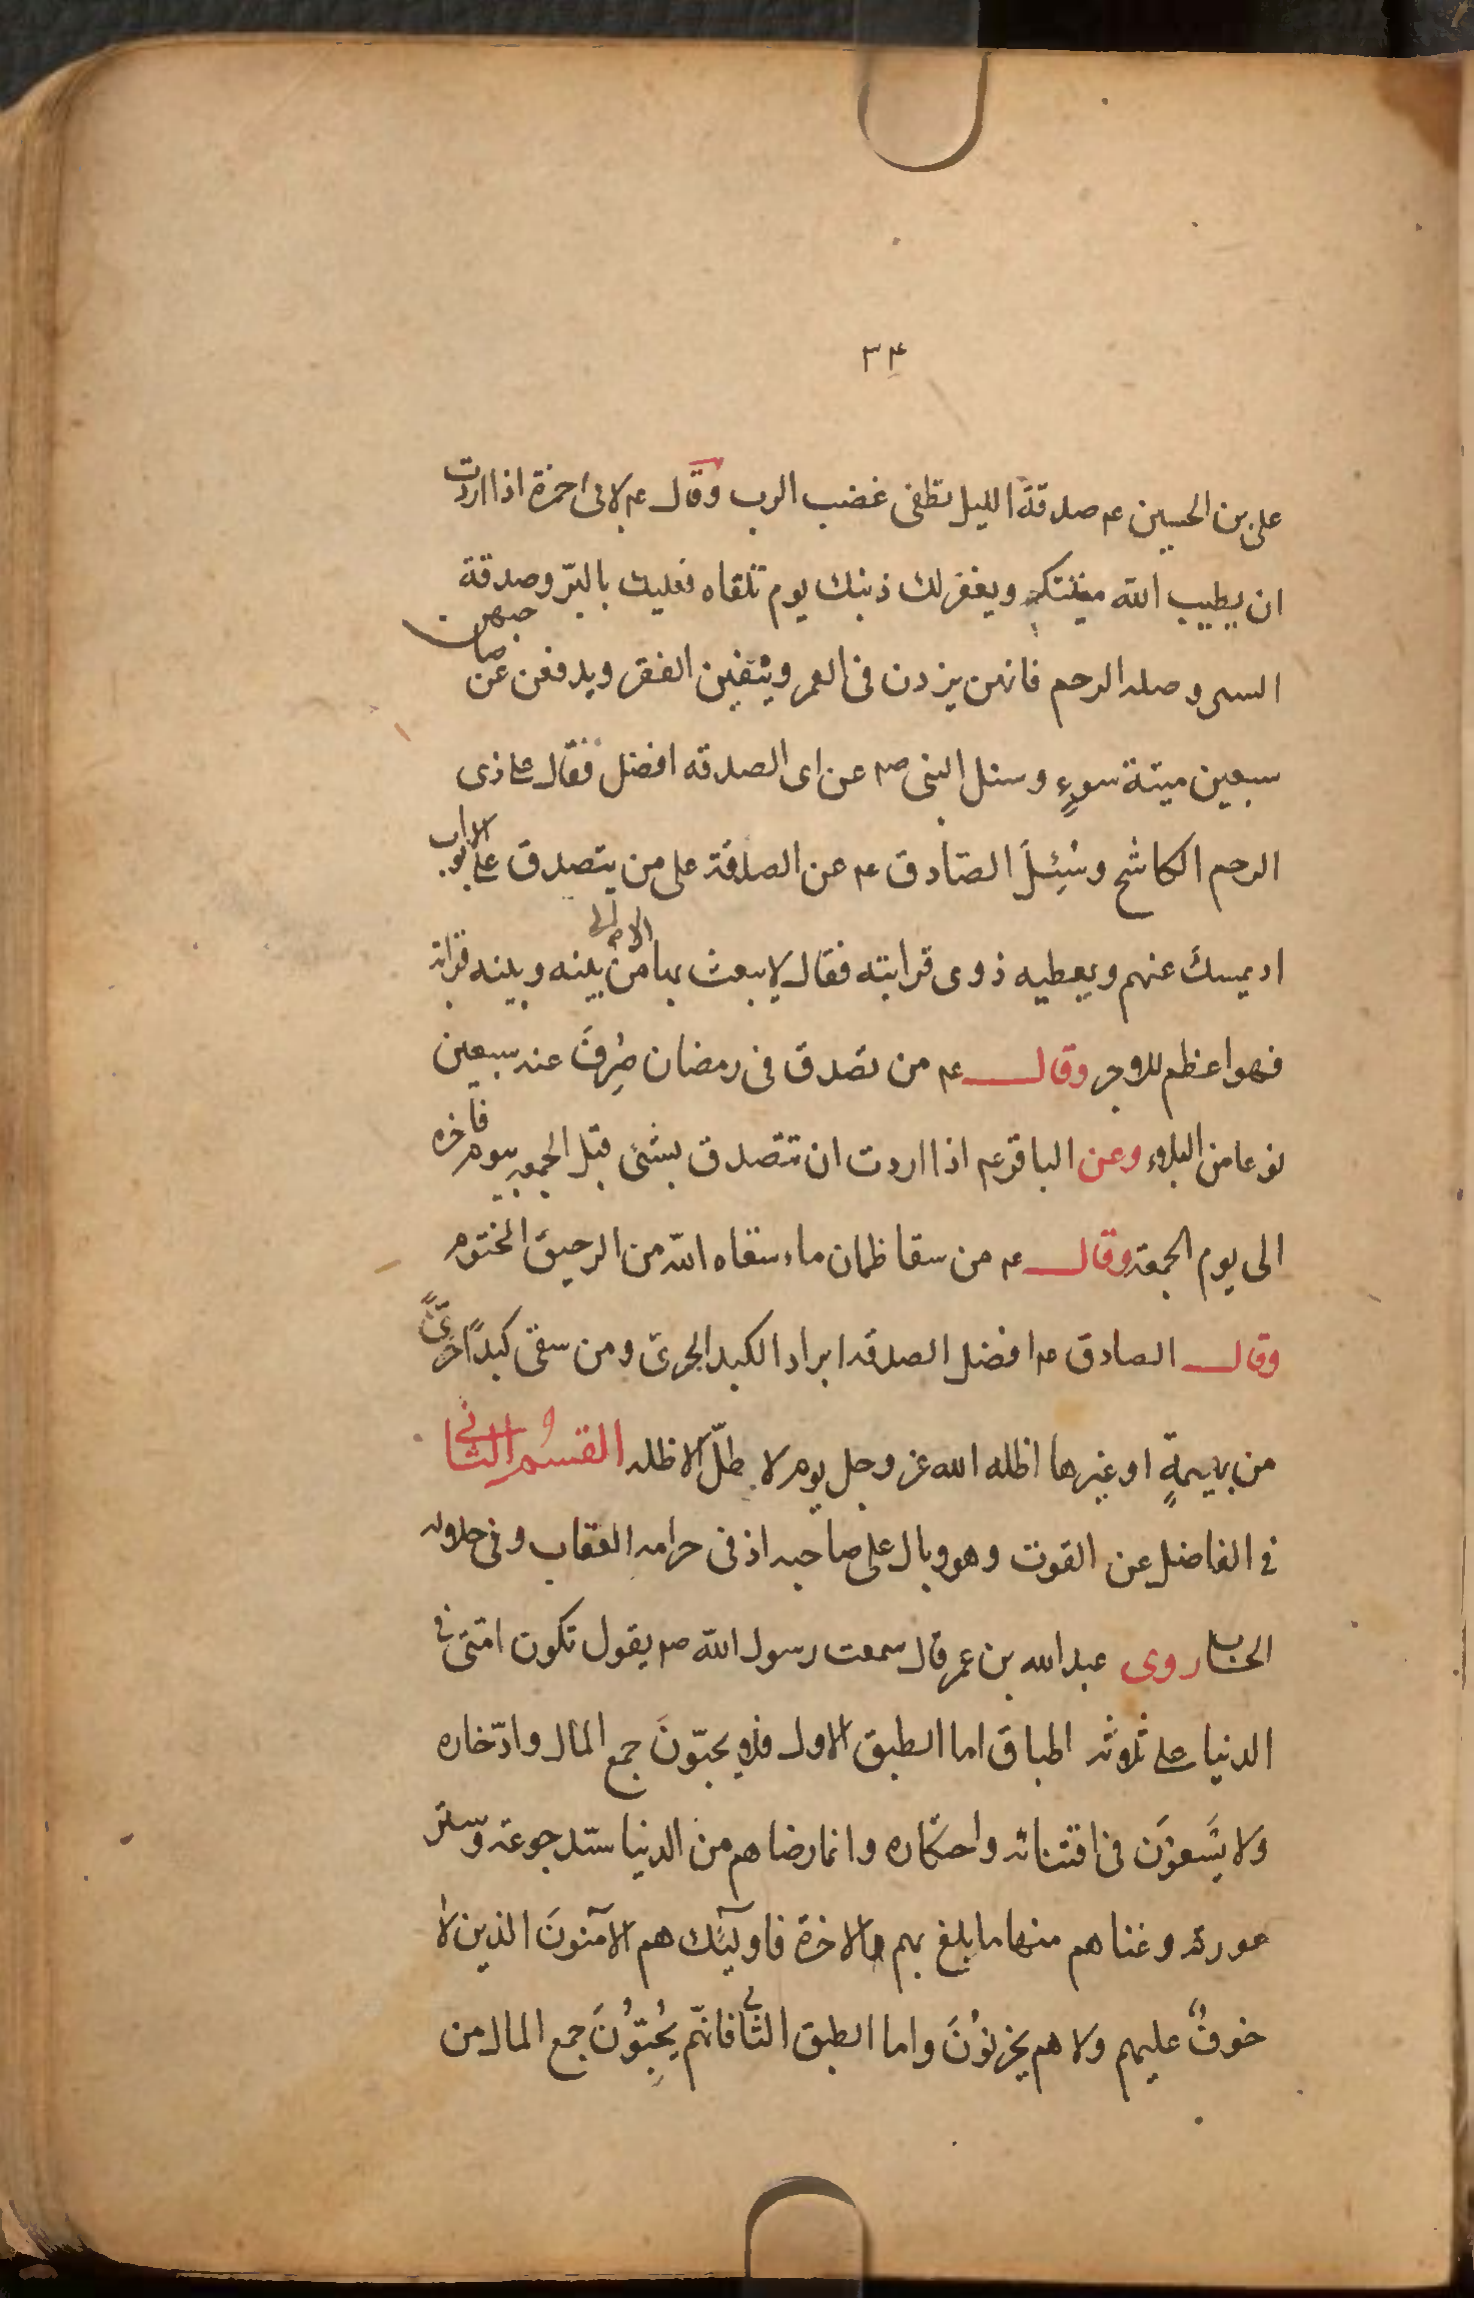 ٣٤
على بن الحسين ع م صدقة الليل تطفى غضب الرب وقال ع م لابى حمزة اذا اردت
ان يطيب الله ميتتك ويغفر لك ذنبك يوم تلقاه فعليك بالبرّ وصدقة
السر وصله الرحم فانهن يزدن فى العمر وينفين الفقر ويدفعن عن صاحبهن
سبعين ميتة سوءٍ وسئل النبى ص م عن اى الصدقه افضل فقال على ذى
الرحم الكاشح وسُئِلَ الصّادق ع م عن الصدقة على من يتصدق على الابواب
او يمسك عنهم ويعطيه ذوى قرابته فقال لا يبعث بها الا الى من بينه وبينه قرابة
فهو اعظم للاجر وقال ع م من تصدق فى رمضان صُرِفَ عنه سبعين
نوعا من البلاء وعن الباقر ع م اذا اردت ان تتصدق بشئ قبل الجمعه بيوم فاخره
الى يوم الجمعة وقال ع م من سقا ظمان ماء سقاه الله من الرحيق المختوم
وقال الصادق ع م افضل الصدقه ابراد الكبد الحرىّ ومن سقى كبدًا حرىًّ
من بهيمةٍ او غيرها اظله الله عز وجل يوم لا ظلّ الا ظله القسم الثانى
فى الفاضل عن القوت وهو وبال على صاحبه اذ فى حرامه العقاب وفى حلاله
الحساب روى عبد الله بن عمر قال سمعت رسول الله ص م يقول تكون امتى فى
الدنيا على ثلاثه اطباق اما الطبق الاول فلا يحبّونَ جمع المال وادّخاره
ولا يَسَعَوْنَ فى اقتنائه واحتكاره وانما رضاهم من الدنيا ستد جوعة وستر
عورة وغناهم منها ما بلغ بهم الاخرة فاولئِك هم الآمنونَ الذين لا
خوفٌ عليهم ولا هم يحزنوُنَ واما الطبق الثانى فانهّم يُحِبّوُنَ جمع المال من